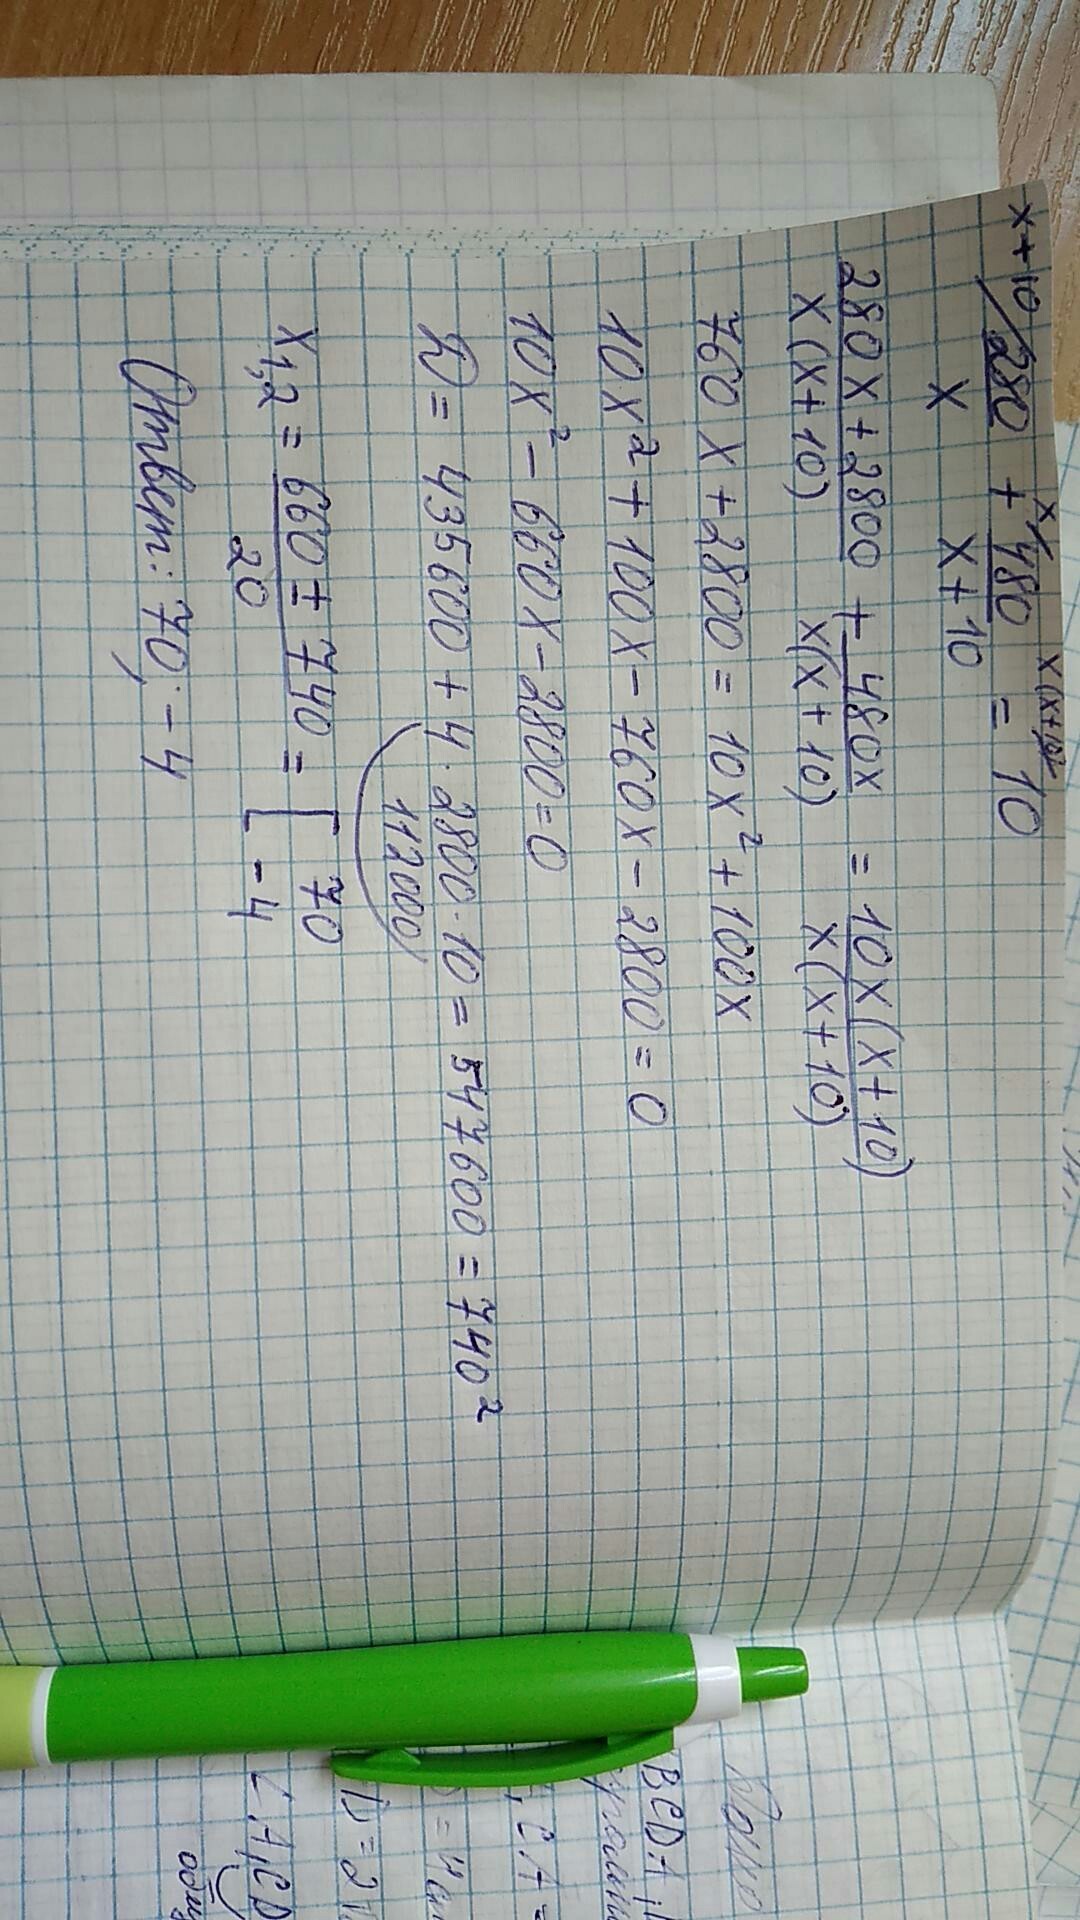 x+10/ 280/x + x/ 480/(x+10) = x(x+10)/ 10
(280x+2800)/(x(x+10)) + 480x/(x(x+10)) = 10x(x+10)/(x(x+10))
760x+2800 = 10x²+100x
10x²+100x-760x-2800=0
10x²-660x-2800=0
D = 435600+4·2800·10 = 547600 = 740²
112000
x1,2 = (660±740)/20 = [ 70
-4
Ответ: 70; -4
Дано
BCDA
, CA =
D = 2